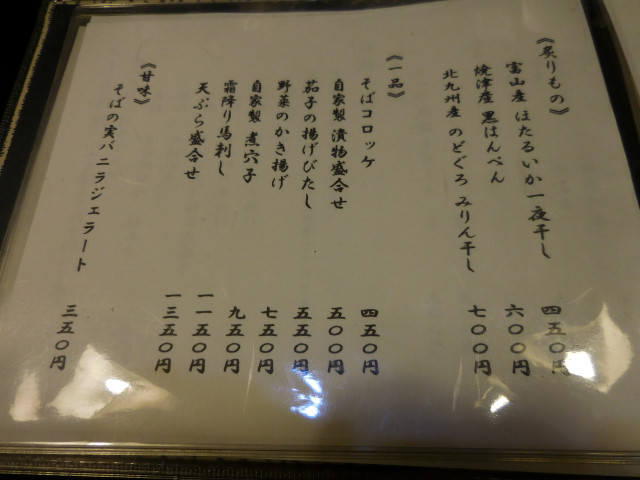 《炙りもの》
富山産 ほたるいか一夜干し 四五〇円
焼津産 黒はんぺん 六〇〇円
北九州産 のどぐろ みりん干し 七〇〇円
《一品》
そばコロッケ 四五〇円
自家製 漬物盛合せ 五〇〇円
茄子の揚げびたし 五五〇円
野菜のかき揚げ 七五〇円
自家製 煮穴子 九五〇円
霜降り馬刺し 一一五〇円
天ぷら盛合せ 一三五〇円
《甘味》
そばの実バニラジェラート 三五〇円